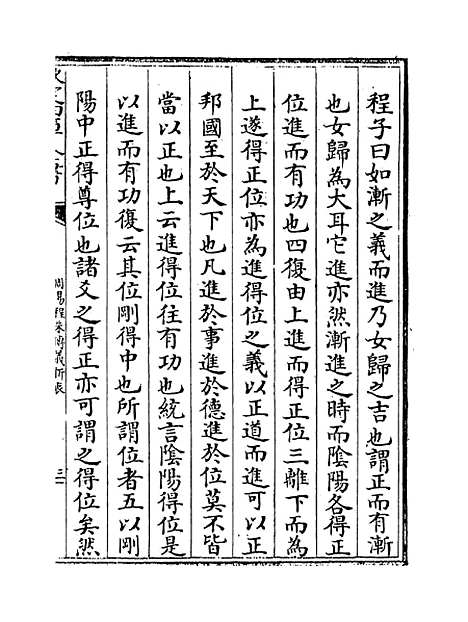 程子曰如漸之義而進乃女歸之吉也謂正而有漸
也女歸為大耳它進亦然漸進之時而陰陽各得正
位進而有功也四復由上進而得正位三離下而為
上遂得正位亦為進得位之義以正道而進可以正
邦國至於天下也凡進於事進於德進於位莫不皆
當以正也上云進得位往有功也統言陰陽得位是
以進而有功復云其位剛得中也所謂位者五以剛
陽中正得尊位也諸爻之得正亦可謂之得位矣然
周易程朱傳義折衷